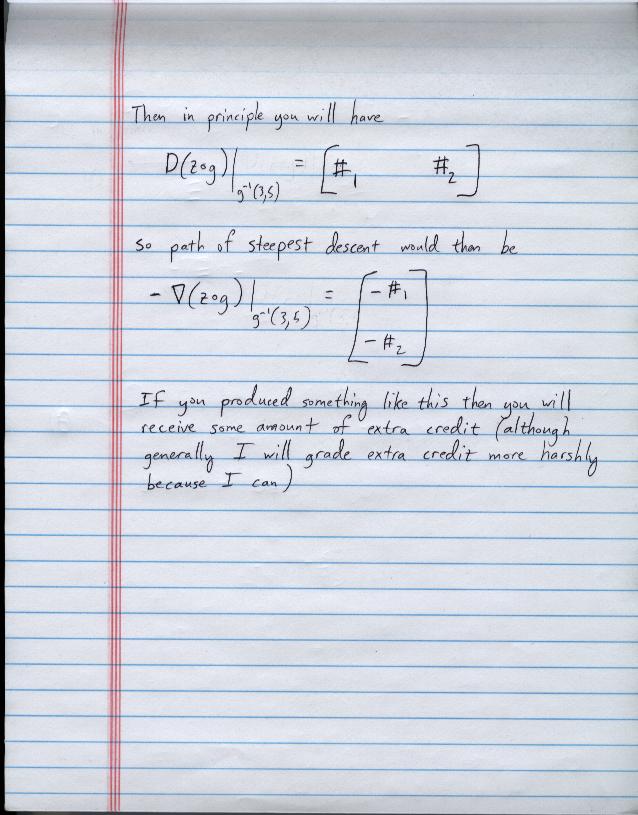 Then in principle you will have
D(z∘g)|g⁻¹(3,5) = [#₁ #₂]
so path of steepest descent would then be
- ∇(z∘g)|g⁻¹(3,5) = [-#₁
-#₂]
If you produced something like this then you will
receive some amount of extra credit (although
generally I will grade extra credit more harshly
because I can)